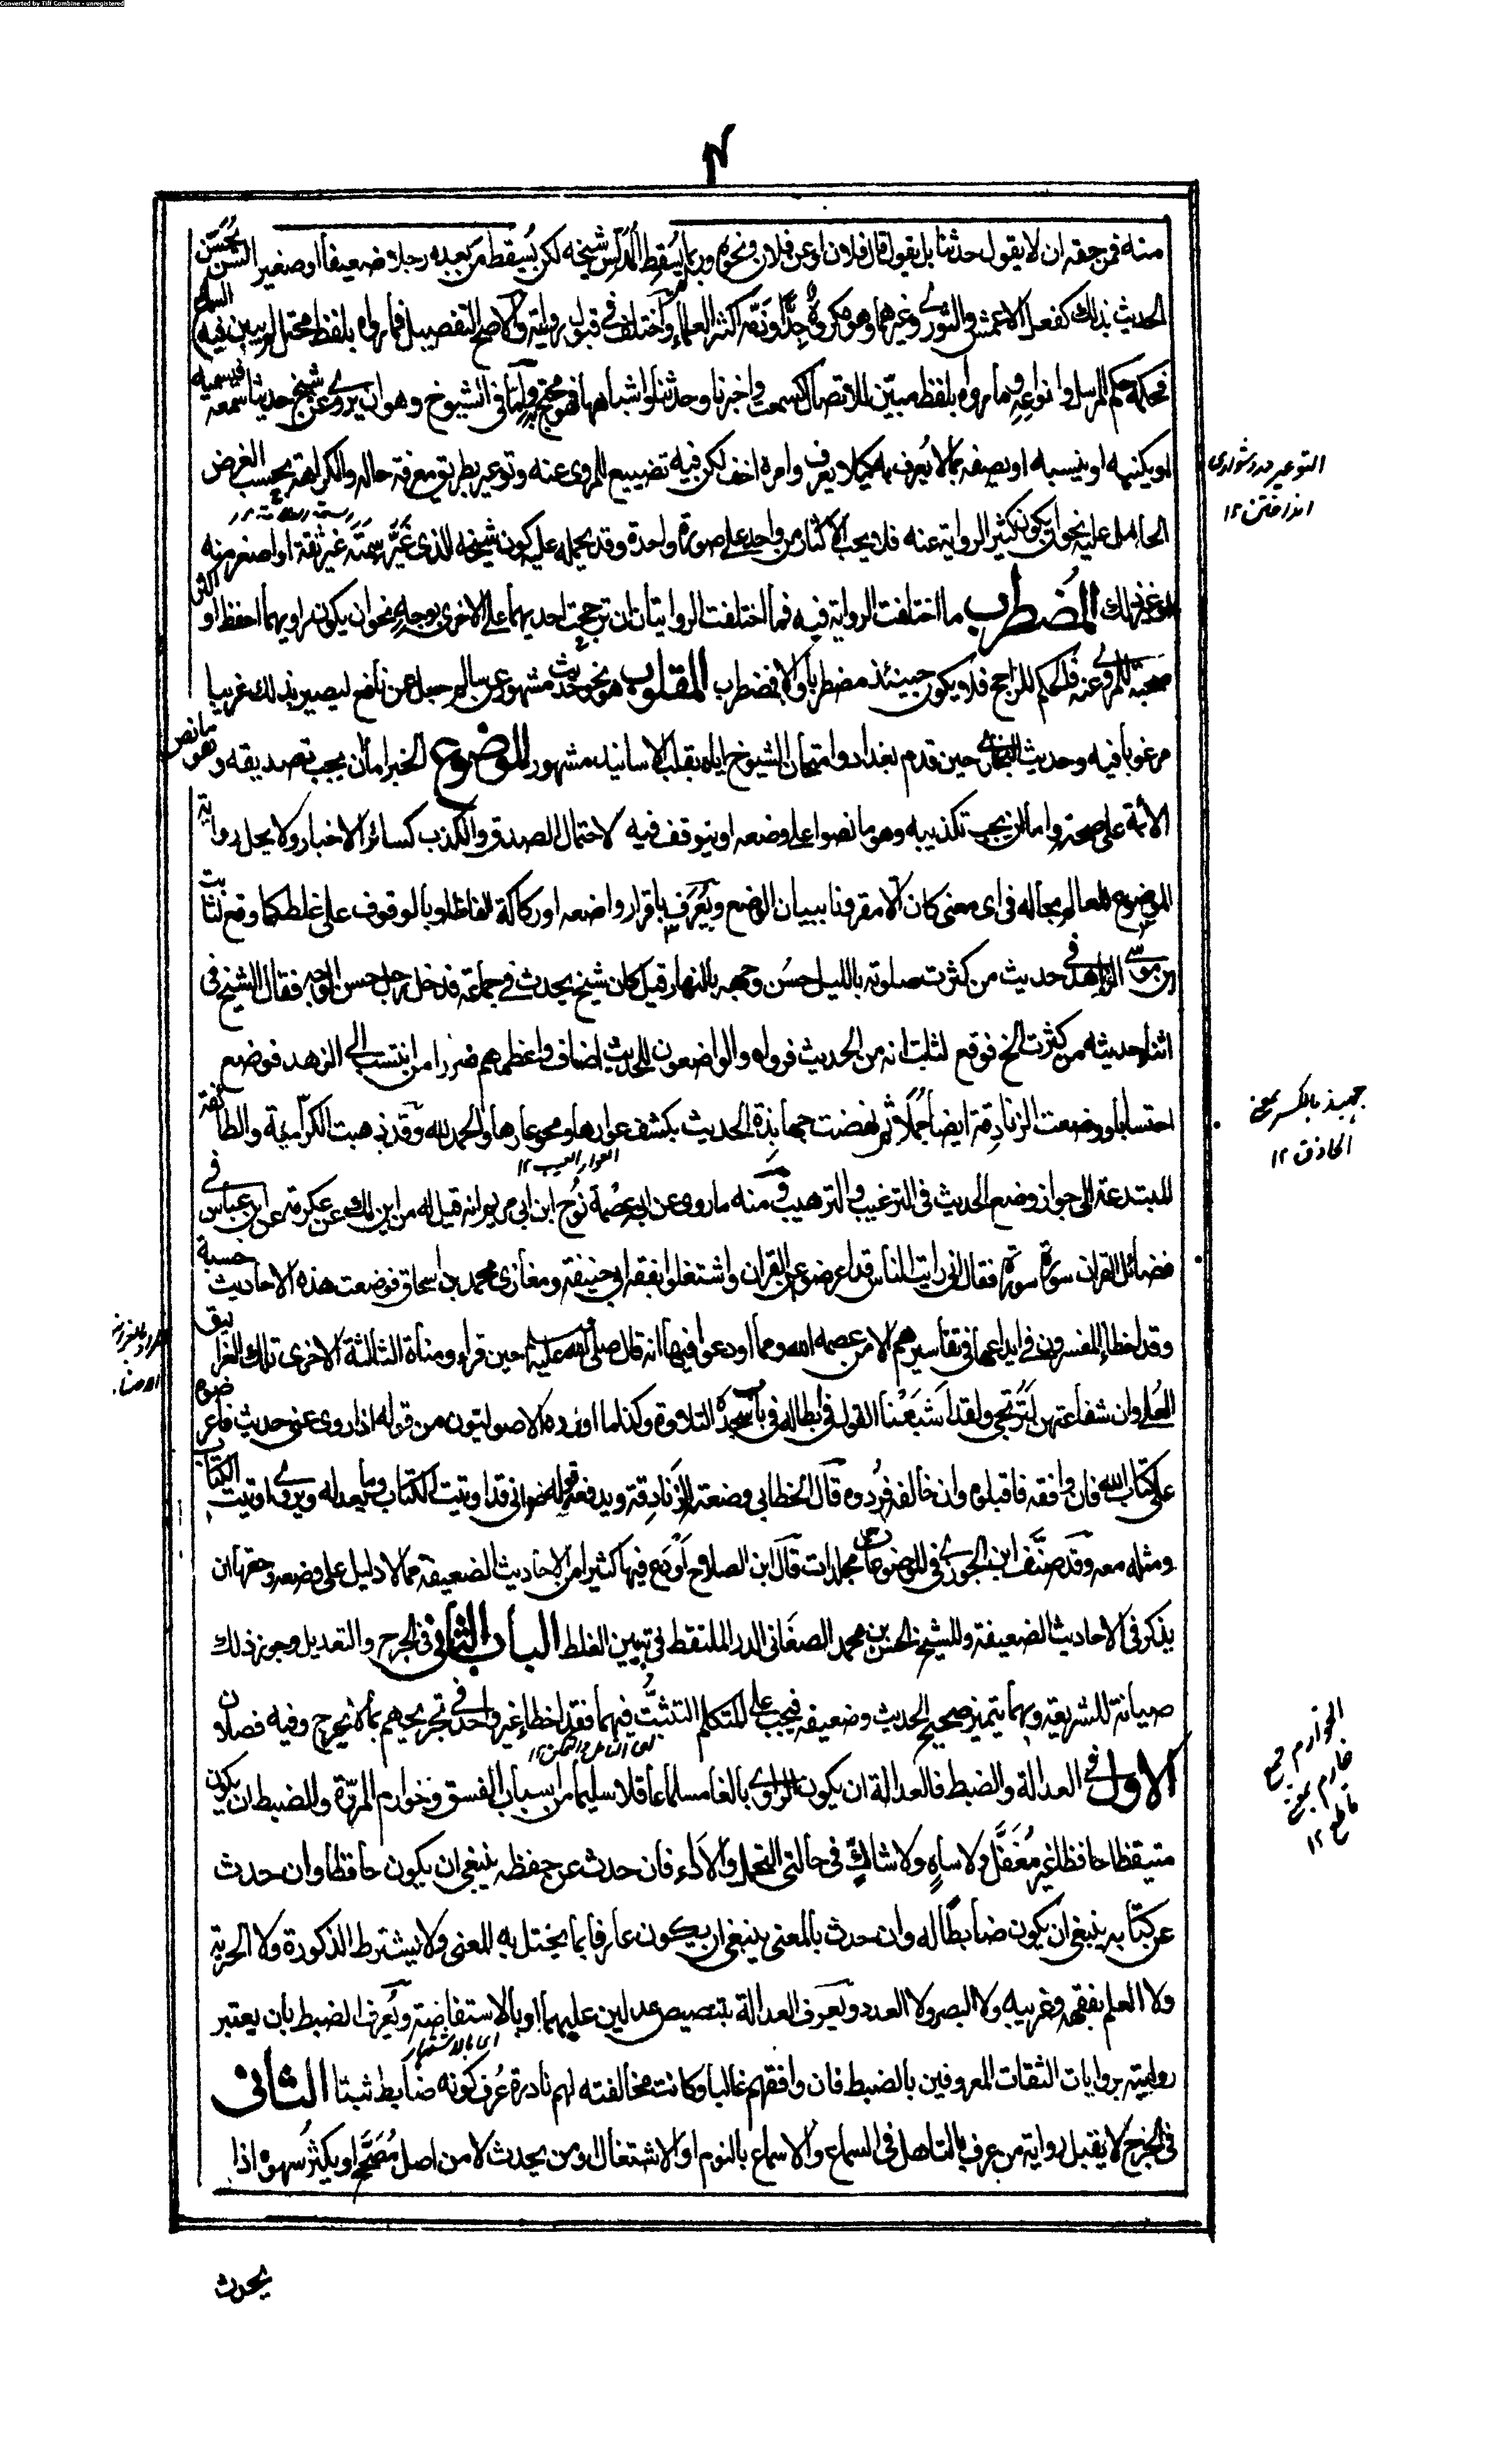 Converted by Tiff Combine - unregistered
منه فمن حقه ان لا يقول حدثنا بل يقول قال فلان او عن فلان ونحوه وربما يسقط المدلس شيخه لكن يُسقط من بعده رجلا ضعيفا او صغير السن يُحَسِّن
الحديث بذلك كفعل الاعمش والثوري وغيرهما وهو مكروه جدًّا وذمّه اكثر العلماء واختلف في قبول روايته والاصح التفصيل فما رواه بلفظ محتمل لم يبين فيه السماع
فحكمه حكم المرسل وانواعه وما رواه بلفظ مبيّن للاتصال كسمعت واخبرنا وحدثنا واشباهها فهو محتج به واما في الشيوخ وهو ان يروى عن شيخ حديثا سمعه فيسميه
او يكنيه او ينسبه او يصفه بما لا يُعرف به كيلا يعرف وامره اخف لكن فيه تضييع للمروى عنه وتوعير بطريق معرفة حاله والكراهة بحسب الغرض
الحامل عليه نحو ان يكون كثير الرواية عنه فلا يحب الاكثار من واحد على صورة واحدة وقد يحمله عليه كون شيخه الذي غيّر سمته غير ثقة او اصغر منه
او غير ذلك المُضطرب ما اختلفت الرواية فيه فما اختلفت الروايتان ان ترجحت احديهما على الاخرى بوجه نحو ان يكون راويهما احفظ او اكثر
صحبة للمروي عنه فالحكم للراجح فلا يكون حينئذ مضطربا والا فمضطرب المقلوب هو نحو حديث مشهور عن سالم جعل عن نافع ليصير بذلك غريبا
مرغوبا فيه وحديث البخاري حين قدم بغداد وامتحان الشيوخ اياه بقلب الاسانيد مشهور الموضوع الخبر اما ان يجب تصديقه وهو ما نص
الائمة على صحته واما ان يجب تكذيبه وهو ما نصوا على وضعه او يتوقف فيه لاحتمال الصدق والكذب كسائر الاخبار ولا يحل رواية
الموضوع للعالم بحاله في اى معنى كان الا مقرونا ببيان الوضع ويُعرَف باقرار واضعه او ركاكة الفاظه او بالوقوف على غلطه كما وقع لثابت
بن موسى الزاهد في حديث من كثرت صلوته بالليل حسُن وجهه بالنهار قيل كان شيخ يحدث في جماعة فدخل رجل حسن الوجه فقال الشيخ في
اثناء حديثه من كثرت الخ فوقع لثابت انه من الحديث فرواه والواضعون للحديث اصناف واعظمهم ضررا من انتسب الى الزهد فوضع
احتسابا ووضعت الزنادقة ايضا جُمَلا ثم نهضت جهابذة الحديث بكشف عوارها ومحو عارها والحمد لله وقد ذهبت الكرّامية والطائفة
العوار العيب ١٢
المبتدعة الى جواز وضع الحديث في الترغيب والترهيب ومنه ما روى عن ابي عصمة نُوح ابن ابي مريم انه قيل له من اين لك عن عكرمة عن ابن عباس في
فضائل القران سورة سورة فقال انى رايت الناس قد اعرضوا عن القران واشتغلوا بفقه ابي حنيفة ومغازى محمد بن اسحاق فوضعت هذه الاحاديث حسبة
وقد اخطأ المفسرون في ايداعها في تفاسيرهم الا من عصمه الله ومما اودعوا فيها انه قال صلى الله عليه حين قراء ومناة الثالثة الاخرى تلك الغرانيق
العُلى وان شفاعتهن لتُرتجى ولقد اَشبَعْنا القول في ابطاله في باب سجدة التلاوة وكذا ما اورده الاصوليون من قوله اذا روى عنى حديث فاعرضوه
على كتاب الله فان وافقه فاقبلوه وان خالفه فرُدوه قال الخطابي وضعته الزنادِقة ويدفعه قوله انى قد اوتيت الكتاب وما يعدله ويروى اوتيت الكتاب
ومثله معه وقد صنَّف ابن الجوزي في الموضوعات مجلدات قال ابن الصلاح اَوْدع فيها كثيرا من الاحاديث الضعيفة مما لا دليل على وضعه وحقها ان
يذكر في الاحاديث الضعيفة وللشيخ الحسن بن محمد الصغَانى الدر الملتقط في تبيين الغلط الباب الثاني في الجرح والتعديل وجوز ذلك
صيانة للشريعة وبهما يتميز صحيح الحديث وضعيفه فيجب على المتكلم التثبُّت فيهما فقد اخطأ غير واحد في تجريحهم بما لا يجرح وفيه فصلان
الاول في العدالة والضبط فالعدالة ان يكون الراوي بالغا مسلما عاقلا سليما من اسباب الفسق وخوارم المروّة والضبط ان يكون
متيقظا حافظا غير مُغَفَّل ولا ساهٍ ولا شاكٍّ في حالتي التحمل والاداء فان حدث عن حفظه ينبغي ان يكون حافظا وان حدث
عن كتابه ينبغي ان يكون ضابطًا له وان حدث بالمعنى ينبغي ان يكون عارفا بما يختل به المعنى ولا يشترط الذكورة ولا الحرية
ولا العلم بفقهه وغريبه ولا البصر ولا العدد ويعرف العدالة بتنصيص عدلين عليهما او بالاستفاضة ويُعرف الضبط بان يعتبر
اى بالاشتهار
روايته بروايات الثقات المعروفين بالضبط فان وافقهم غالبا وكانت مخالفته لهم نادرة عُرف كونه ضابطا ثبتا الثاني
في الجرح لا يقبل رواية من عرف بالتساهل في السماع والاسماع بالنوم او الاشتغال ومن يحدث لا من اصل مُصَحَّح او يكثر سُهوه اذا
يحدث
التوعير در دشوارى
انداختن ١٢
جهبذ بالكسر بمعنى
الحاذق ١٢
الخوارم جمع
خارم بمعنى
قاطع ١٢